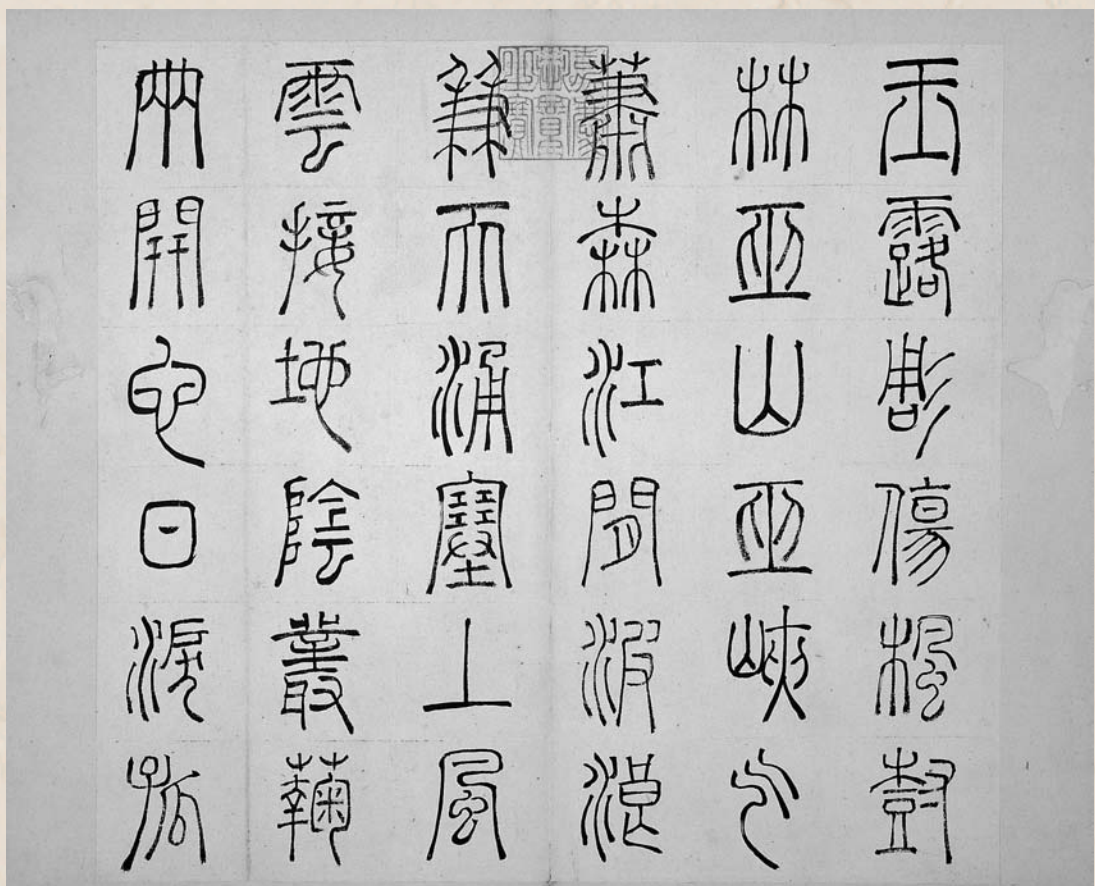 玉露彫傷楓尌
林巫山巫峽气
蕭森江間波浪
兼天涌塞上風
雲接地陰叢蘜
兩開它日淚孤